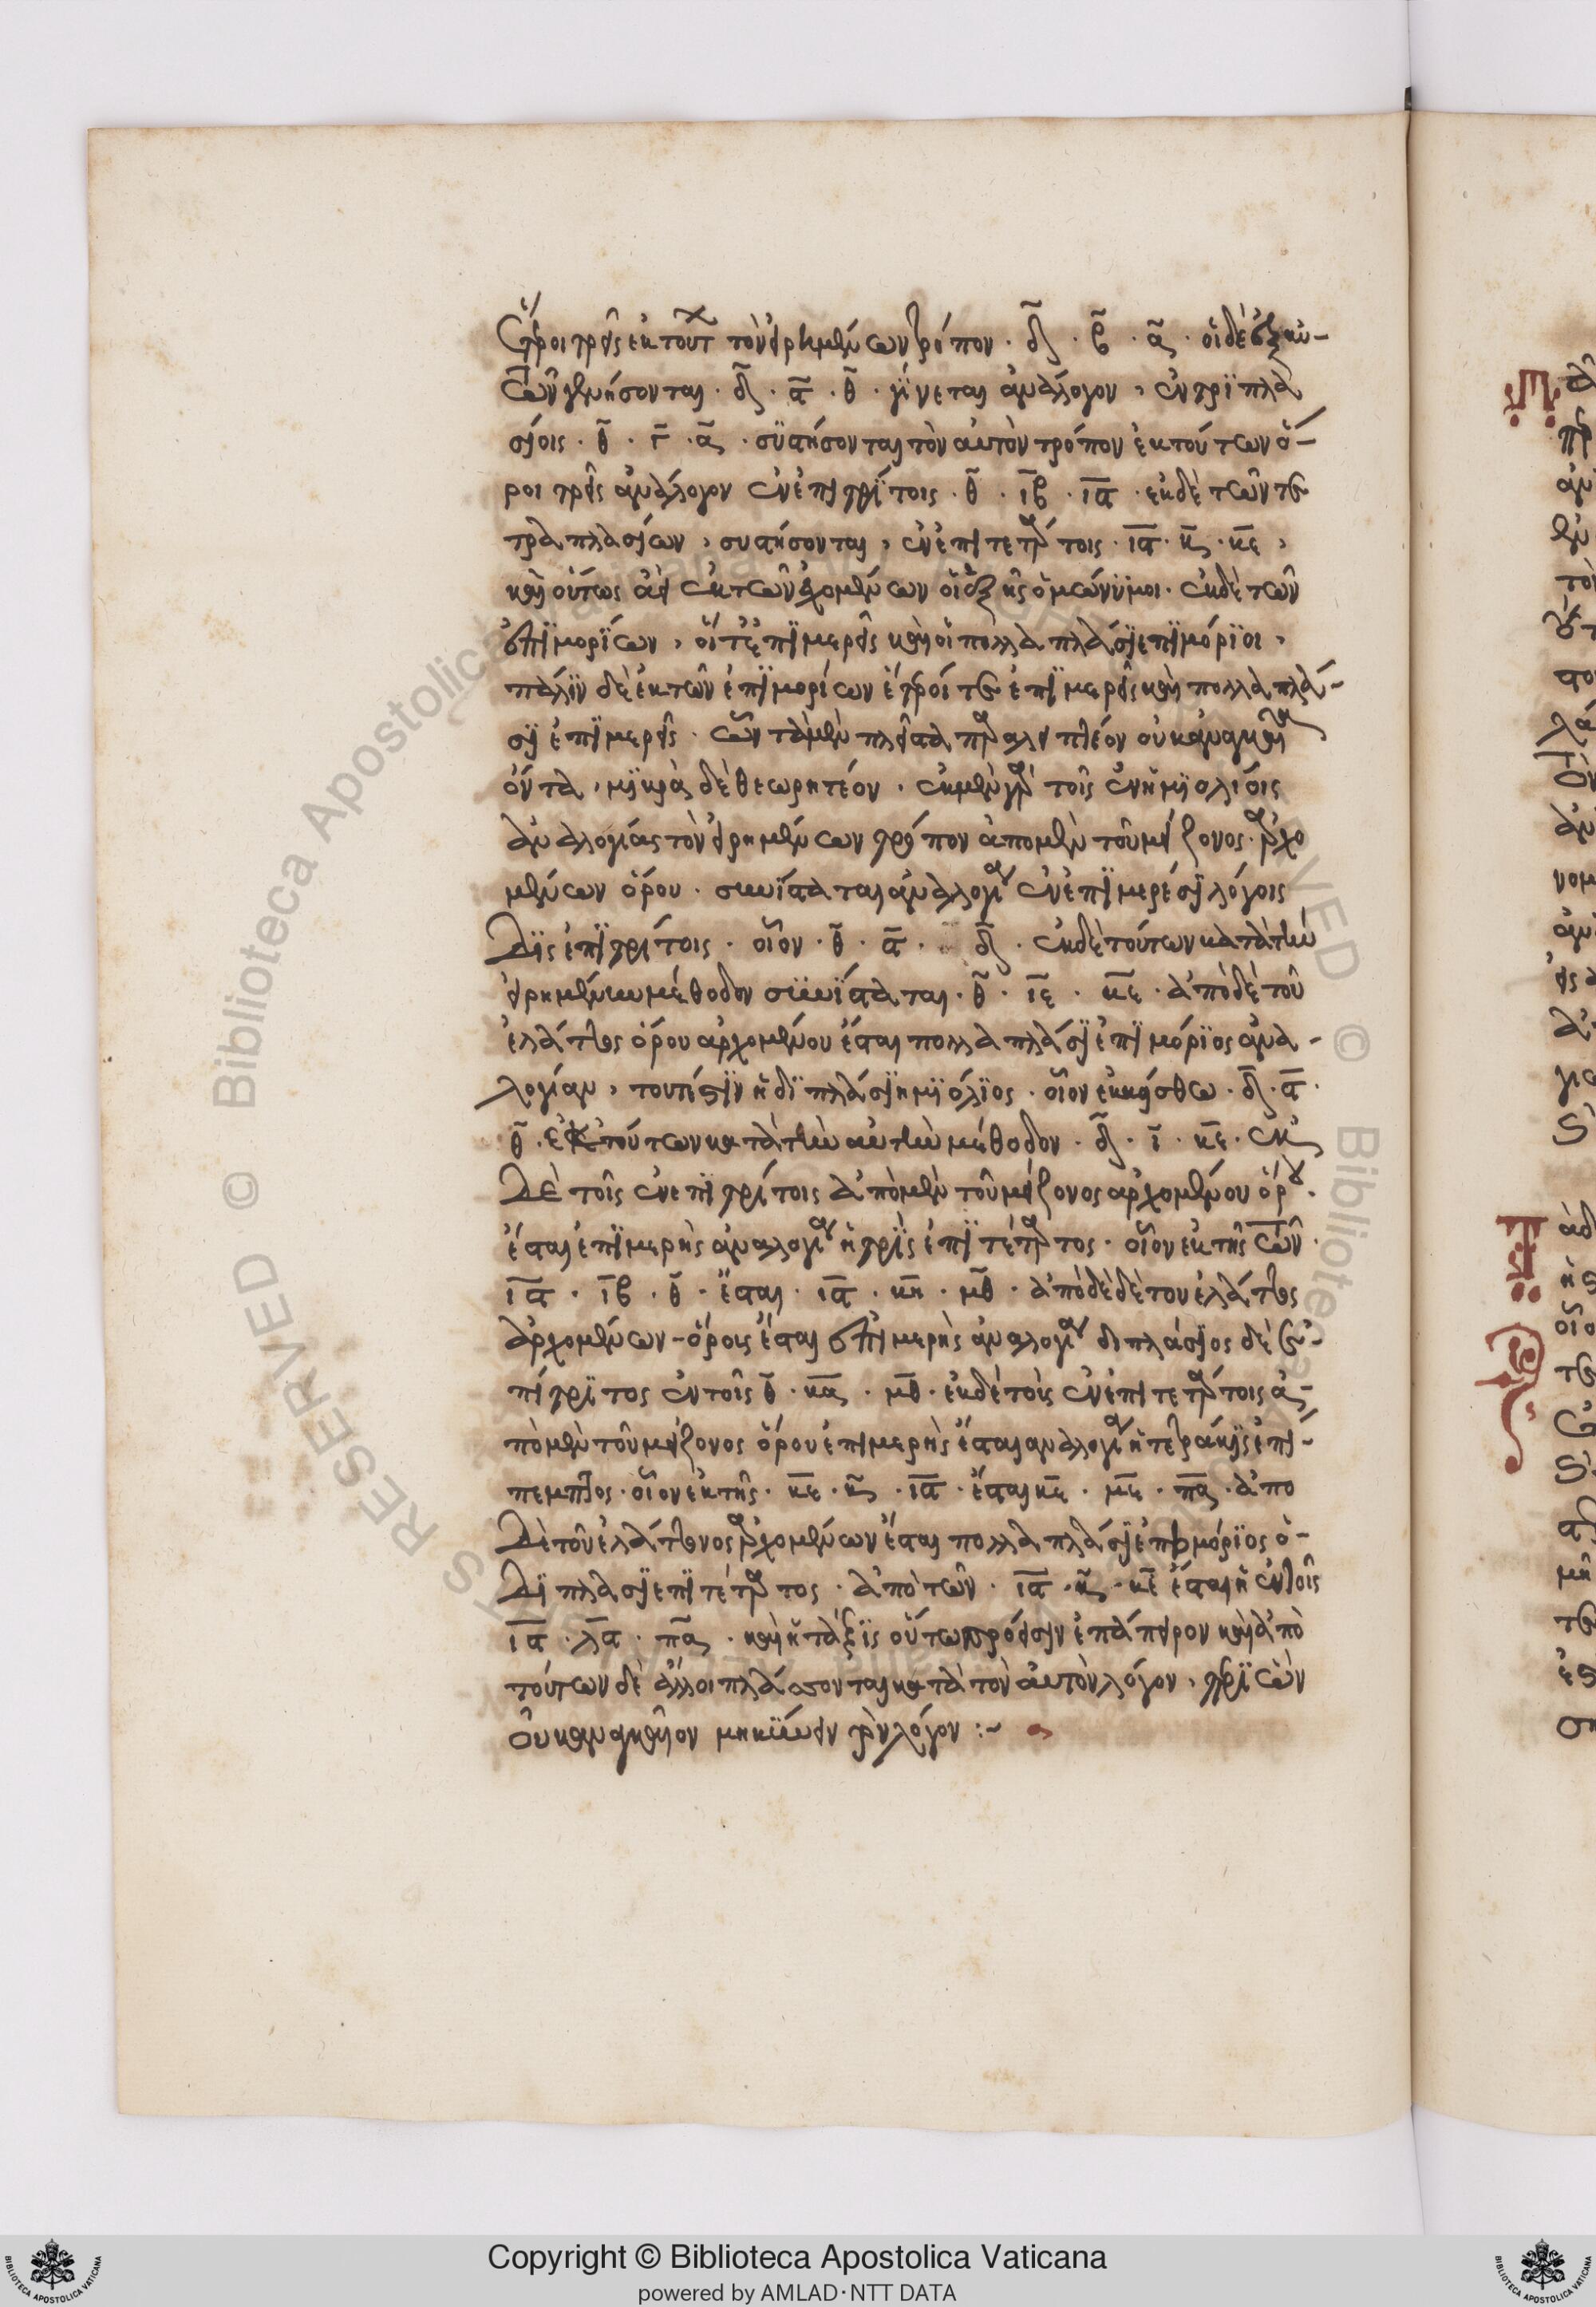 ὅροι τρεῖς ἐκ τούτων τὸν εἰρημένων τρόπον · δ · β · α · οἱ δὲ ἐξ αὐ-
τῶν γενήσονται · δ · ς · θ · γίνεται ἀνάλογον, ἐν τριπλα
σίοις · θ · γ · α · συστήσονται τὸν αὐτὸν τρόπον ἐκ τούτων ὅ-
ροι τρεῖς ἀνάλογον ἐν ἐπιτρίτοις · θ · ιβ · ις · ἐκ δὲ τῶν τε
τραπλασίων, συστήσονται, ἐν ἐπιτετάρτοις · ις · κ · κε,
καὶ οὕτως ἀεὶ ἐκ τῶν ἐχομένων οἱ ἑξῆς ὁμώνυμοι · ἐκ δὲ τῶν
ἐπιμορίων, οἵ τε ἐπιμερεῖς καὶ οἱ πολλαπλασιεπιμόριοι,
πάλιν δὲ ἐκ τῶν ἐπιμορίων ἕτεροί τε ἐπιμερεῖς καὶ πολλαπλα-
σιεπιμερεῖς · ὧν τὰ μὲν πλεῖστα παραλειπτέον οὐκ ἀναγκαῖα
ὄντα, μικρὰ δὲ θεωρητέον · ἐκ μὲν γὰρ τοῖς ἐν ἡμιολίοις
ἀναλογίας τὸν εἰρημένων τρόπον ἀπο μὲν τοῦ μείζονος ἀρχο
μένων ὅρου · συνίσταται ἀναλογία ἐν ἐπιμερέσι λόγοις
δὶς ἐπιτρίτοις · οἷον · θ · ς · δ · ἐκ δὲ τούτων κατὰ τὴν
εἰρημένην μέθοδον συνίσταται · θ · ιε · κε · ἀπὸ δὲ τοῦ
ἐλάττονος ὅρου ἀρχομένου ἔσται πολλαπλασιεπιμόριος ἀνα-
λογίαν, τουτέστιν ἡ διπλασιημιόλιος · οἷον ἐκκείσθω · δ · ς ·
θ · ἐκ τούτων κατὰ τὴν αὐτὴν μέθοδον · δ · ι · κε · ἐκ
δὲ τοῖς ἐν ἐπιτρίτοις ἀπὸ μὲν τοῦ μείζονος ἀρχομένου ὅρου ·
ἔσται ἐπιμερὴς ἀναλογία ἡ τρὶς ἐπιτέταρτος · οἷον ἐκ τῆς τῶν ·
ις · ιβ · θ · ἔσται · ις · κη · μθ · ἀπὸ δὲ δὲ τοῦ ἐλάττονος
ἀρχομένων - ὅροις ἔσται ἐπιμερὴς ἀναλογία διπλάσιος δὲ ἐ-
πίτριτος ἐν τοῖς θ · κα · μθ · ἐκ δὲ τοῖς ἐν ἐπιτετάρτοις ἀ-
πὸ μὲν τοῦ μείζονος ὅρου ἐπιμερὴς ἔσται ἀναλογία ἡ τετράκις ἐπι-
πεμπτος · οἷον ἐκ τῆς · κε · κ · ις · ἔσται κε · με · πα · ἀπο
δὲ τοῦ ἐλάττονος ἀρχομένων ἔσται πολλαπλασιεπιμόριος ὁ-
διπλασιεπιτέταρτος · ἀπὸ τῶν · ις · κ · κε ἔσται ἡ ἐν τοῖς
ις · λς · πα · καὶ ἡ τάξις οὕτω πρόεισιν ἐπάπειρον καὶ ἀπὸ
τούτων δὲ ἄλλοι πλάσσονται κατὰ τὸν αὐτὸν λόγον, περὶ ὧν
οὐκ ἀναγκαῖον μηκύνειν τὸν λόγον :-